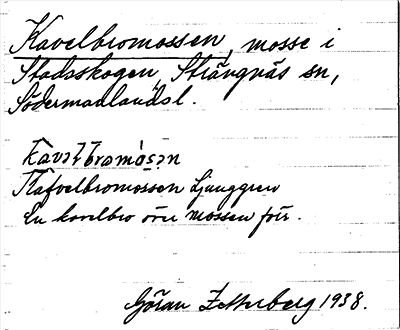 Kavelbromossen, mosse i
Stadsskogen, Strängnäs sn,
Södermanlandsl.
kavəlbromósən
Kafvelbromossen Ljunggren
En kavelbro över mossen förr.
Göran Zetterberg 1938.